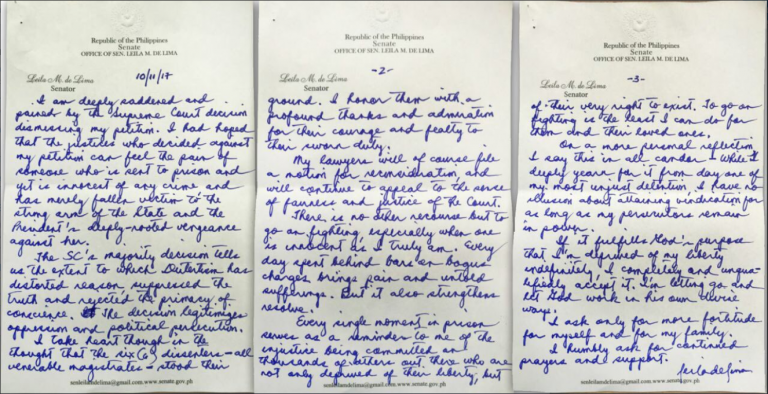 Republic of the Philippines
Senate
OFFICE OF SEN. LEILA M. DE LIMA
Leila M. de Lima
Senator
10/11/17
I am deeply saddened and
pained by the Supreme Court decision
dismissing my petition. I had hoped
that the justices who decided against
my petition can feel the pain of
someone who is sent to prison and
yet is innocent of any crime and
has merely fallen victim to the
strong arm of the State and the
President's deeply-rooted vengeance
against her.
The SC's majority decision tells
us the extent to which Dutertism has
distorted reason, suppressed the
truth and rejected the primacy of
conscience. The decision legitimizes
oppression and political persecution.
I take heart though in the
thought that the six (6) dissenters – all
venerable magistrates – stood their
senleilamdelima@gmail.com www.senate.gov.ph
Republic of the Philippines
Senate
OFFICE OF SEN. LEILA M. DE LIMA
Leila M. de Lima
Senator
-2-
ground. I honor them with a
profound thanks and admiration
for their courage and fealty to
their sworn duty.
My lawyers will of course file
a motion for reconsideration, and
will continue to appeal to the sense
of fairness and justice of the Court.
There is no other recourse but to
go on fighting especially when one
is innocent as I truly am. Every
day spent behind bars on bogus
charges brings pain and untold
sufferings. But it also strengthens
resolve.
Every single moment in prison
serves as a reminder to me of the
injustice being committed on
thousands of others out there who are
not only deprived of their liberty, but
senleilamdelima@gmail.com www.senate.gov.ph
Republic of the Philippines
Senate
OFFICE OF SEN. LEILA M. DE LIMA
Leila M. de Lima
Senator
-3-
of their very right to exist. To go on
fighting is the least I can do for
them and their loved ones.
On a more personal reflection,
I say this in all candor – While I
deeply yearn for it from day one of
my most unjust detention, I have no
illusion about attaining vindication for
as long as my persecutors remain
in power.
If it fulfills God's purpose
that I'm deprived of my liberty
indefinitely, I completely and unqua-
lifiedly accept it. I'm letting go and
let God work in his own divine
ways.
I ask only for more fortitude
for myself and for my family.
I humbly ask for continued
prayers and support.
leila de lima
senleilamdelima@gmail.com www.senate.gov.ph